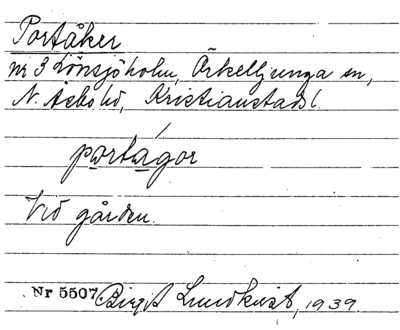 Portåker
nr 3 Lönsjöholm, Örkelljunga sn,
N. Åsbo hd, Kristianstads l.
portágor
Vid gården.
Nr 5507 Birgit Lundkvist, 1939.